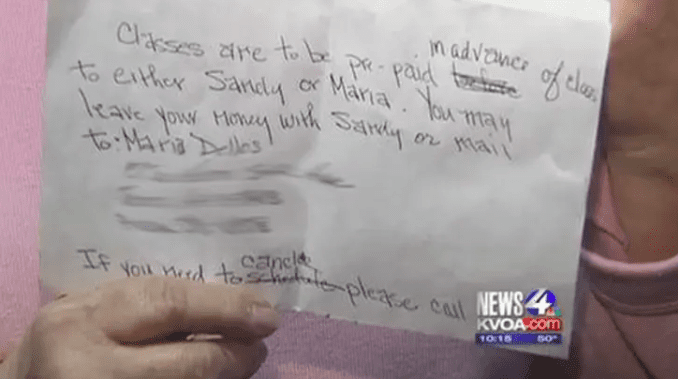 Classes are to be pre-paid in advance of class
to either Sandy or Maria. You may
leave your Money with Sandy or mail
to: Maria
If you need to cancle please call
NEWS 4
KVOA.COM
10:15 50°